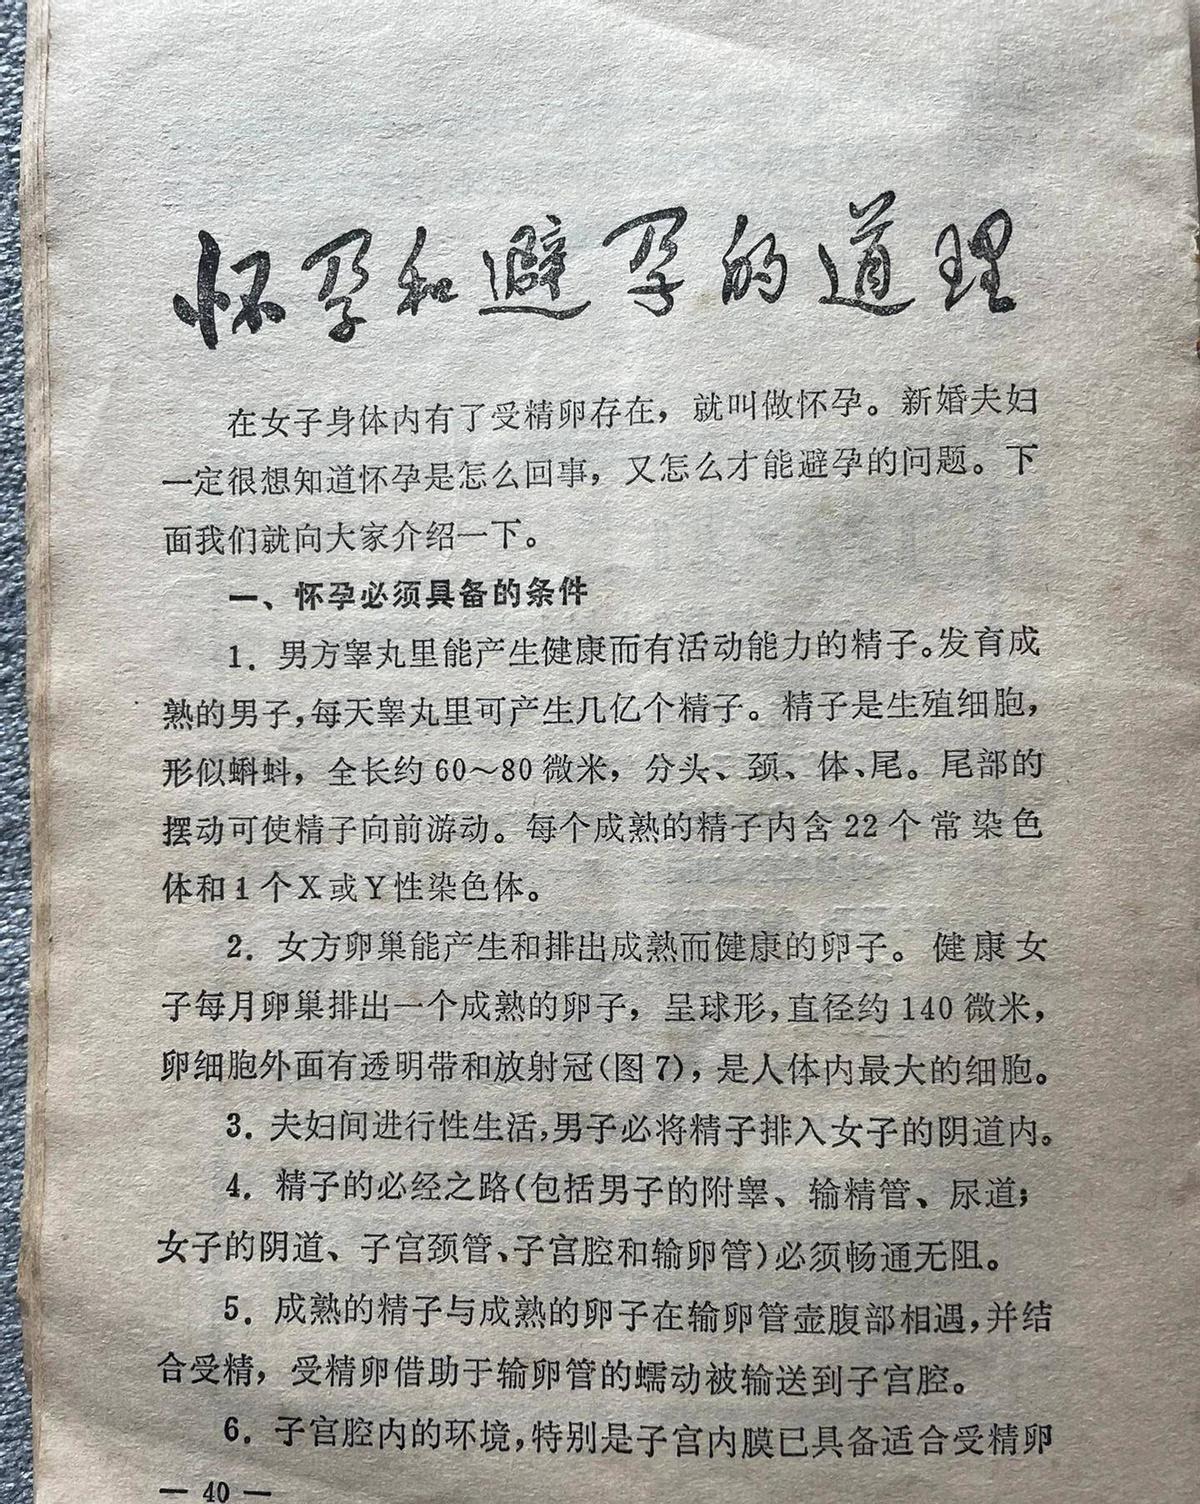 怀孕和避孕的道理
在女子身体内有了受精卵存在，就叫做怀孕。新婚夫妇
一定很想知道怀孕是怎么回事，又怎么才能避孕的问题。下
面我们就向大家介绍一下。
一、怀孕必须具备的条件
1．男方睾丸里能产生健康而有活动能力的精子。发育成
熟的男子，每天睾丸里可产生几亿个精子。精子是生殖细胞，
形似蝌蚪，全长约60～80微米，分头、颈、体、尾。尾部的
摆动可使精子向前游动。每个成熟的精子内含22个常染色
体和1个X或Y性染色体。
2．女方卵巢能产生和排出成熟而健康的卵子。健康女
子每月卵巢排出一个成熟的卵子，呈球形，直径约140微米，
卵细胞外面有透明带和放射冠(图7)，是人体内最大的细胞。
3．夫妇间进行性生活，男子必将精子排入女子的阴道内。
4．精子的必经之路(包括男子的附睾、输精管、尿道；
女子的阴道、子宫颈管、子宫腔和输卵管)必须畅通无阻。
5．成熟的精子与成熟的卵子在输卵管壶腹部相遇，并结
合受精，受精卵借助于输卵管的蠕动被输送到子宫腔。
6．子宫腔内的环境，特别是子宫内膜已具备适合受精卵
— 40 —